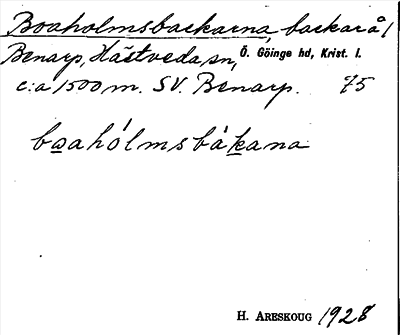 Boaholmsbackarna, backar å
Benarp, Hästveda sn, Ö. Göinge hd, Krist. l.
c:a 1500 m. SV. Benarp. 75
boahólmsbákana
H. ARESKOUG 1928